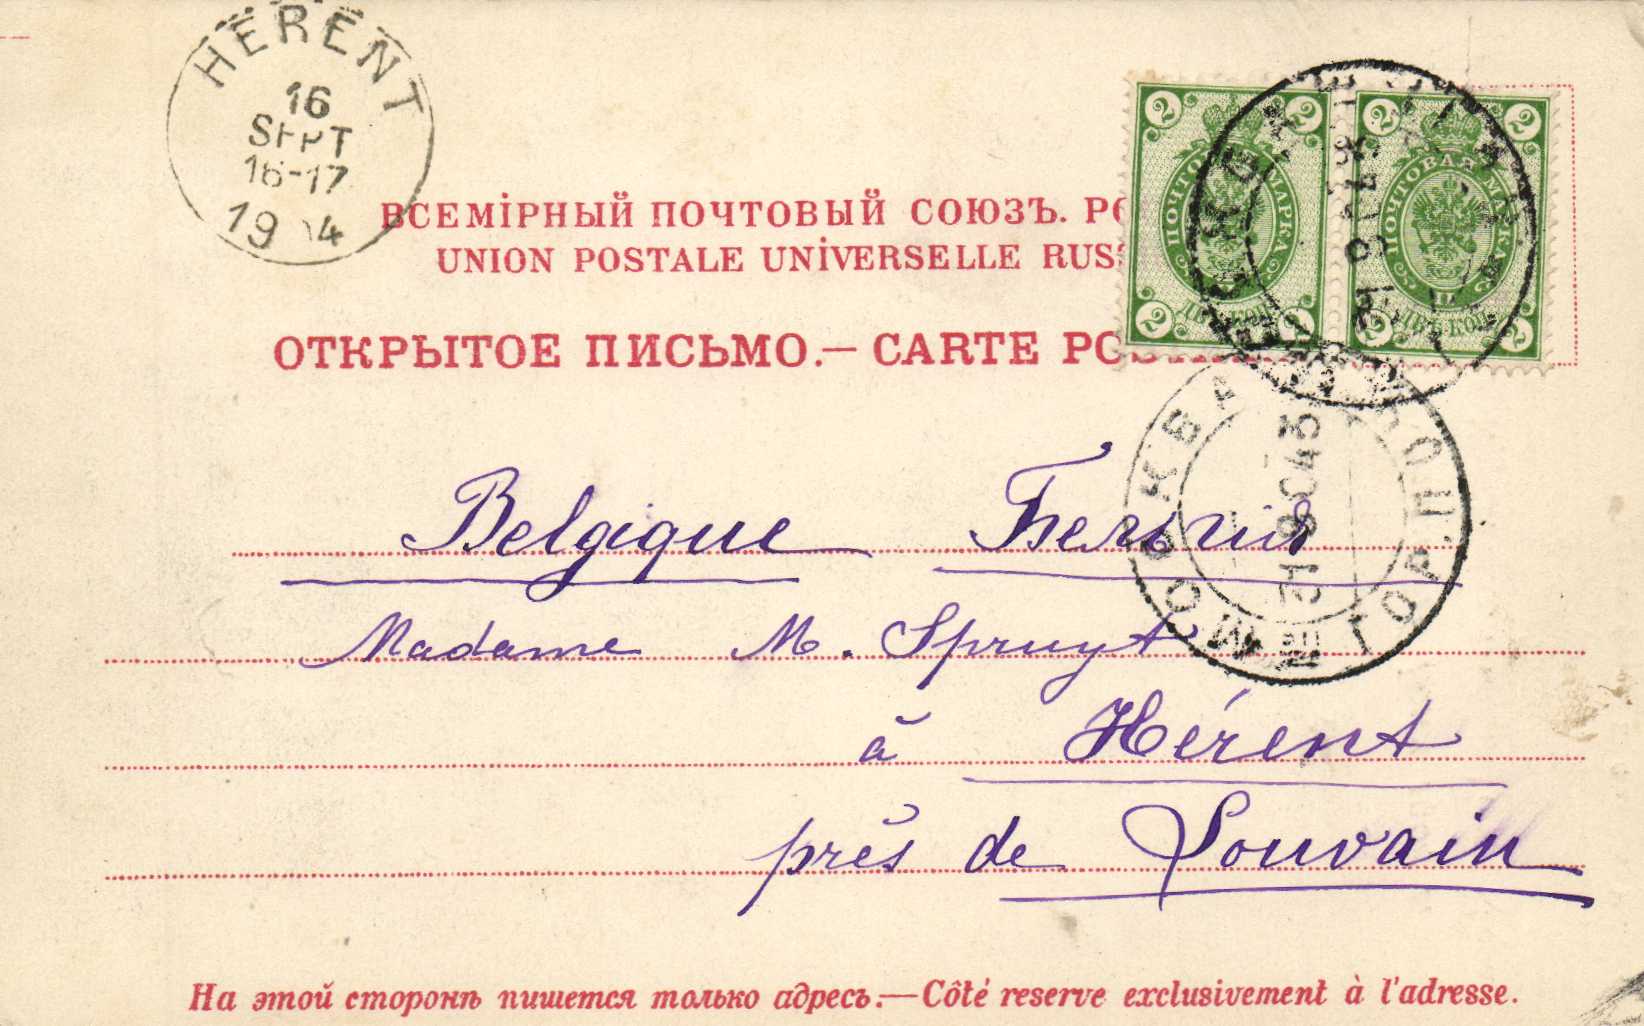 HÉRENT
16
SEPT
16-17
1904
ВСЕМІРНЫЙ ПОЧТОВЫЙ СОЮЗЪ.
UNION POSTALE UNIVERSELLE
ОТКРЫТОЕ ПИСЬМО.— CARTE
2 2 2 2
ПОЧТОВАЯ МАРКА
ДВѢ КОП.
2 2 2 2
ПОЧТОВАЯ МАРКА
ДВѢ КОП.
МОСКВА
ГОР. ПОЧ
31 8 04 3
Belgique Бельгия
Madame M. Spruyt
à Hérent
près de Louvain
На этой сторонѣ пишется только адресъ.—Côté reserve exclusivement à l'adresse.